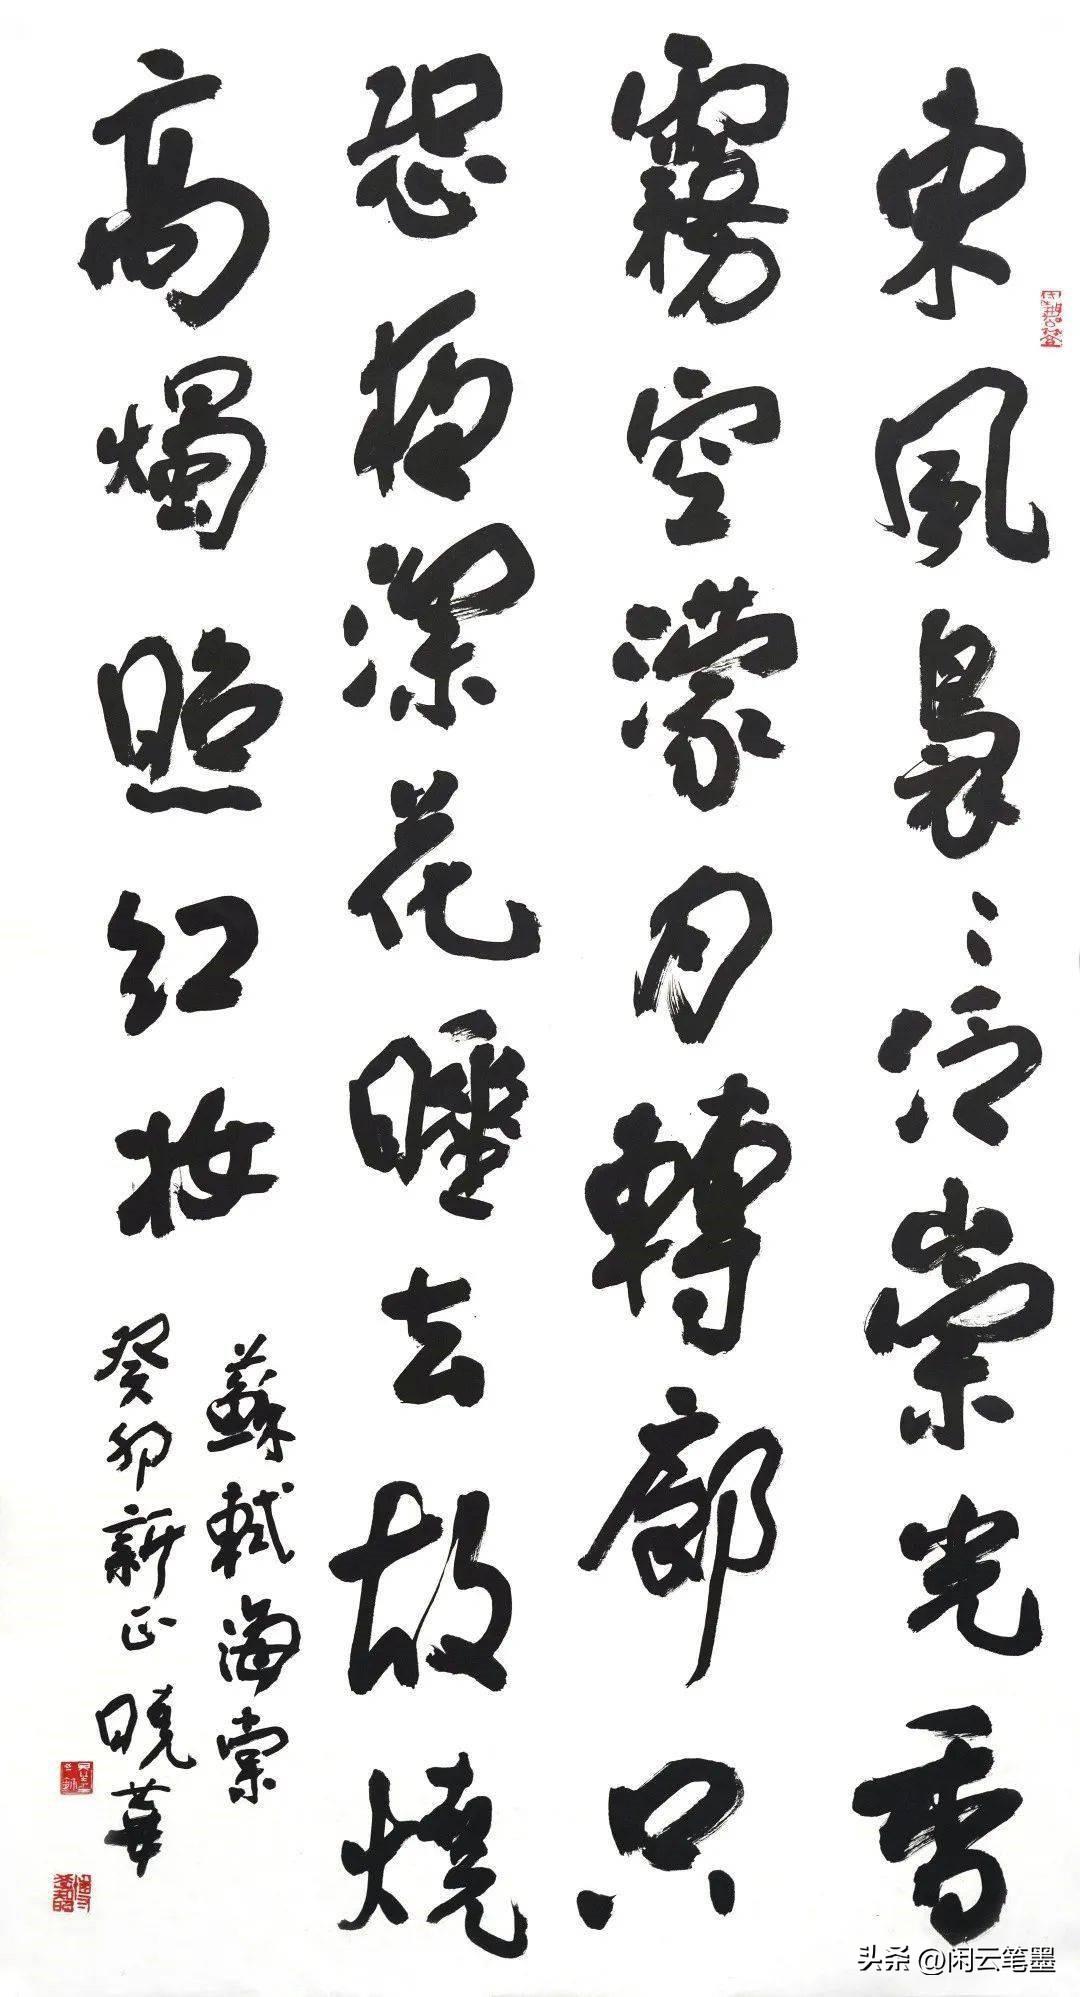 東風裊々泛崇光香
霧空濛月轉廊只
恐夜深花睡去故燒
高燭照紅妝
蘇軾海棠
癸卯新正曉華
头条 @闲云笔墨